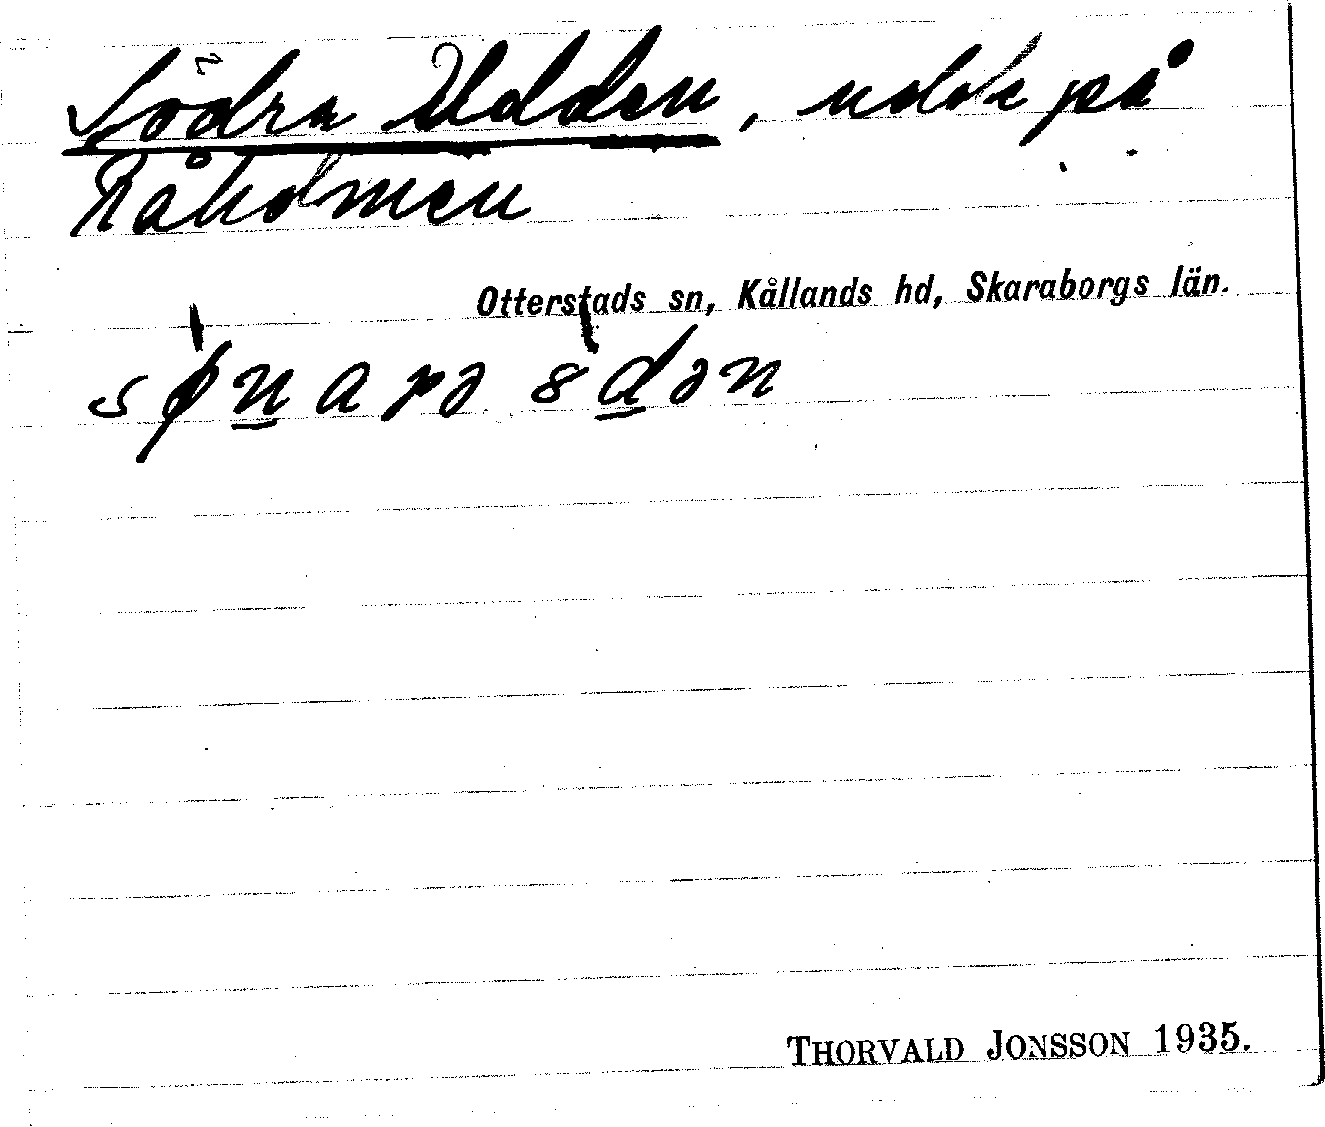 Södra Udden, udde på
Råholmen
Otterstads sn, Kållands hd, Skaraborgs län.
THORVALD JONSSON 1935.